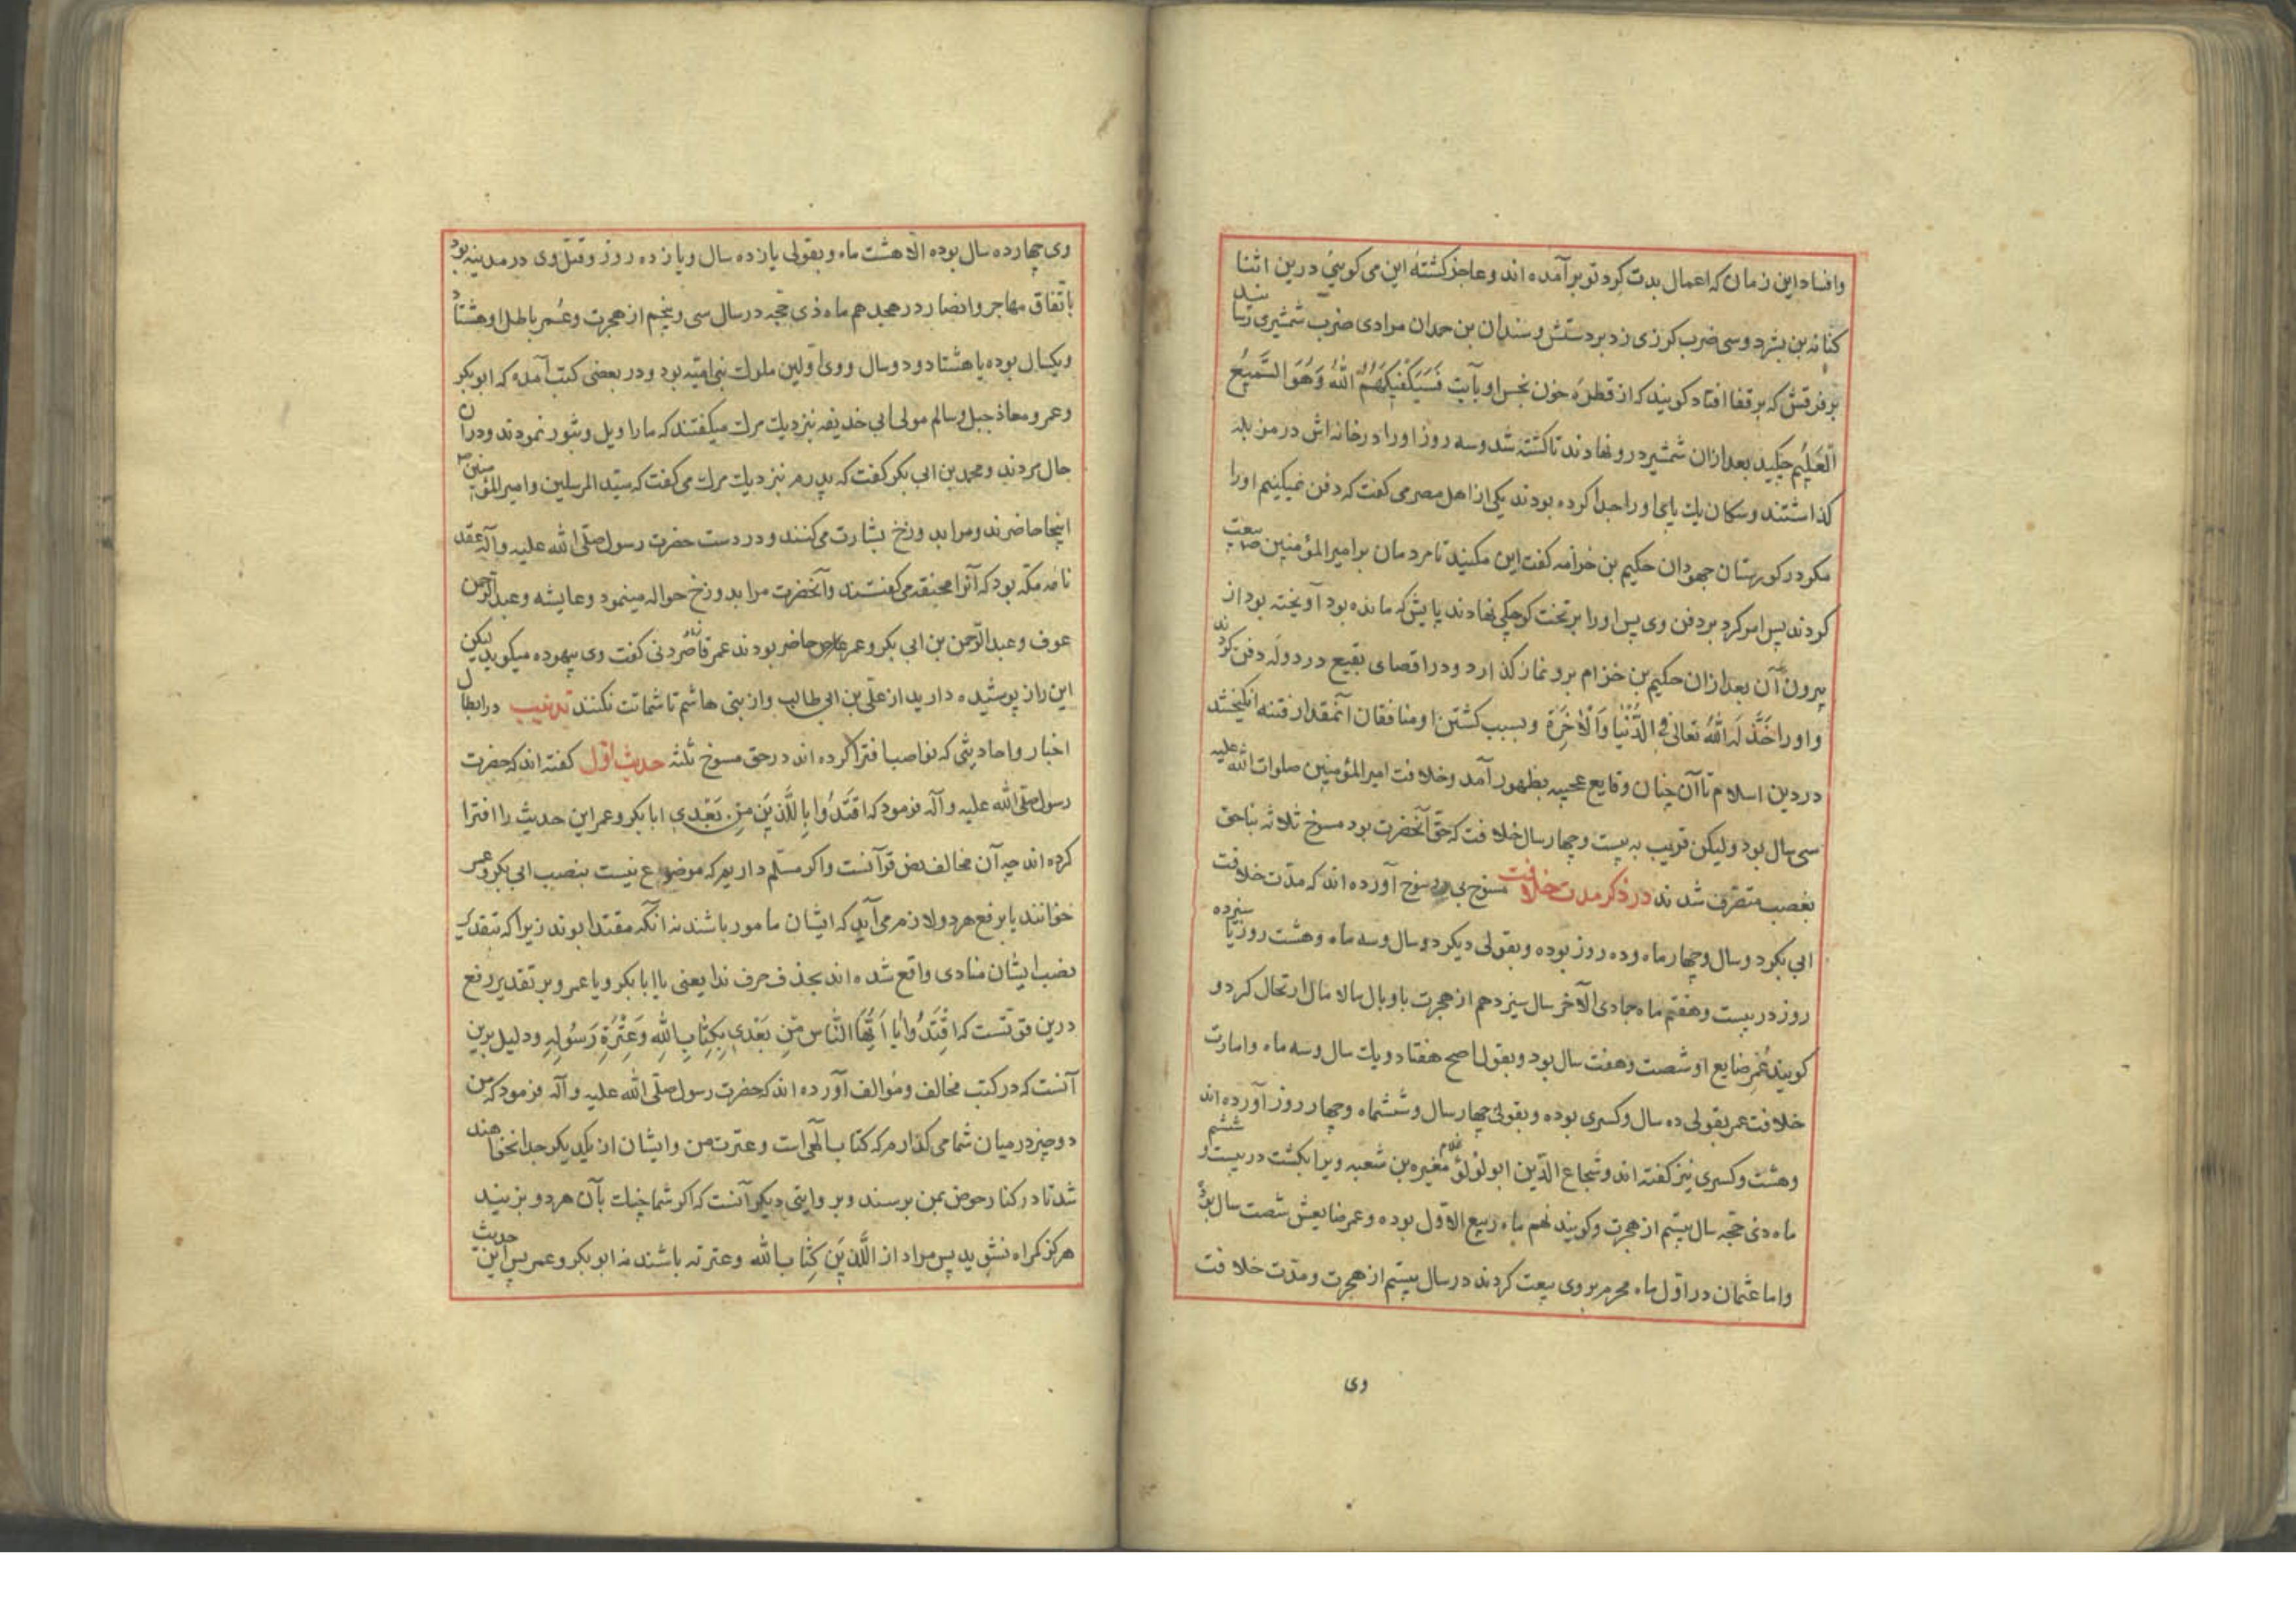 وافساد این زمان که اعمال بدت کرد تو بر آمده اند و عاجز کشتهٔ این می کویئ درین اثنا
کنانه بن بشر دو سی ضرب کرزی زد بر دستش و سندان بن حمدان مرادی ضرب شمشیری رسانید
بر فرقش که بر قفا افتاد کویند که از قطرهٔ خون نجس او بآیت فَسَیَکْفِیکَهُمُ اللّٰهُ وَهُوَ السَّمیعُ
الْعَلیُم چکید بعد ازان شمشیر درو نهادند تا کشته شد و سه روز او را در خانه اش در مزبله
کذاشتند و سکان یک پای او را جدا کرده بودند یکی از اهل مصر می کفت که دفن نمیکنیم او را
مکر در کورستان جهودان حکیم بن خزامه کفت این مکنید تا مردمان بر امیر المؤمنین ص بیعت
کردند پس امر کرد بر دفن وی پس او را بر تخت کوچکی نهادند پایش که مانده بود آویخته بود از
بیرون آن بعد ازان حکیم بن خزام برو نماز کذارد و در اقصای بقیع در دوله دفن کردند
واورا خَذَلَهُ اللّٰهُ تعالی فی الدُّنْیٰا وَالْآخِرَةِ و بسبب کشتن او منافقان آنمقدار فتنه انکیختند
در دین اسلام تا آن چنان وقایع عجیبه بظهور آمد و خلافت امیر المؤمنین صلوات الله علیه
سی سال بود و لیکن قریب به بیست و چهار سال خلافت که حق آنحضرت بود مسوخ ثلاثه بناحق
بغصب متصرف شدند در ذکر مدت خلافت مسوخ بی رسوخ آورده اند که مدّت خلافت
ابی بکر دو سال و چهار ماه و ده روز بوده و بقولی دیکر دو سال و سه ماه و هشت روز یا سیزده
روز در بیست و هفتم ماه جمادی الآخر سال سیزدهم از هجرت با وبال مالا مال ارتحال کرد و
کویند عُمر ضایع او شصت و هفت سال بود و بقول اصح هفتاد و یک سال و سه ماه و امارت
خلافت عمر بقولی ده سال و کسری بوده و بقولی چهار سال و ششماه و چهار روز آورده اند
و هشت و کسری نیز کفته اند و شجاع الدّین ابو لؤلؤ غلام مغیره بن شعبه ویرا بکشت در بیست و ششم
ماه ذی حجّه سال بیستم از هجرت و کویند نهم ماه ربیع الاوّل بوده و عمر ضایعش شصت سال بود
و اما عثمان در اوّل ماه محرم بر وی بیعت کردند در سال بیستم از هجرت و مدّت خلافت
وی
وی چهارده سال بوده الّا هشت ماه و بقولی یازده سال و یازده روز و قتل وی در مدینه بود
باتّفاق مهاجر و انصار در هجدهم ماه ذی حجّه در سال سی و پنجم از هجرت و عُمر باطل او هشتاد
و یکسال بوده یا هشتاد و دو سال و وی اوّلین ملوک بنی امیّه بود و در بعضی کتب آمده که ابو بکر
و عمر و معاذ جبل و سالم مولی ابی حذیفه نزدیک مرک میکفتند که ما را ویل و ثبور نمودند و در ان
حال مردند و محمد بن ابی بکر کفت که پدرم نزدیک مرک می کفت که سیّد المرسلین و امیر المؤمنین ص
اینجا حاضرند و مرا بدوزخ بشارت می کنند و در دست حضرت رسول صلّی الله علیه و آله عقد
نامه مکّه بود که آنرا محنقه می کفتند و آنحضرت مرا بدوزخ حواله مینمود و عایشه و عبد الرّحمن
عوف و عبد الرّحمن بن ابی بکر و عمر حاضر بودند عمر کفت وی بیهوده میکوید لیکن
این راز پوشیده دارید از علی بن ابی طالب و از بنی هاشم تا شماتت نکنند تذنیب در ابطال
اخبار و احادیثی که نواصب افترا کرده اند در حق مسوخ ثلثه حدیث اوّل کفته اند که حضرت
رسول صلّی الله علیه و آله فرمود که اقتَدُوا بِاللَّذَینِ مِن بَعْدی ابا بکر و عمر این حدیث را افترا
کرده اند چه آن مخالف نص قرآنست و اکر مسلّم داریم که موضوع نیست بنصب ابی بکر و عمر
خوانند یا برفع هر دو لازم می آید که ایشان مامور باشند نه آنکه مقتدا بوند زیرا که بتقدیر
نصب ایشان منادی واقع شده اند بحذف حرف ندا یعنی یا ابا بکر و یا عمر و بر تقدیر رفع
درین قوّتست که اقْتَدُوا یٰا اَیُّهَا النّٰاس مِن بَعْدی بِکِتٰابِ اللّٰهِ وَعِتْرَةِ رَسُولِهِ و دلیل برین
آنست که در کتب مخالف و مؤالف آورده اند که حضرت رسول صلّی الله علیه و آله فرمود که من
دو چیز در میان شما می کذارم که کتاب آلهی است و عترت من و ایشان از یکدیکر جدا نخواهند
شد تا در کنار حوض بمن برسند و بر وایتی دیکر آنست که اکر شما چنک بآن هر دو بزنید
هرکز کمراه نشوید پس مراد از اللَّذَینِ کِتٰاب الله و عترته باشند نه ابو بکر و عمر پس این حدیث